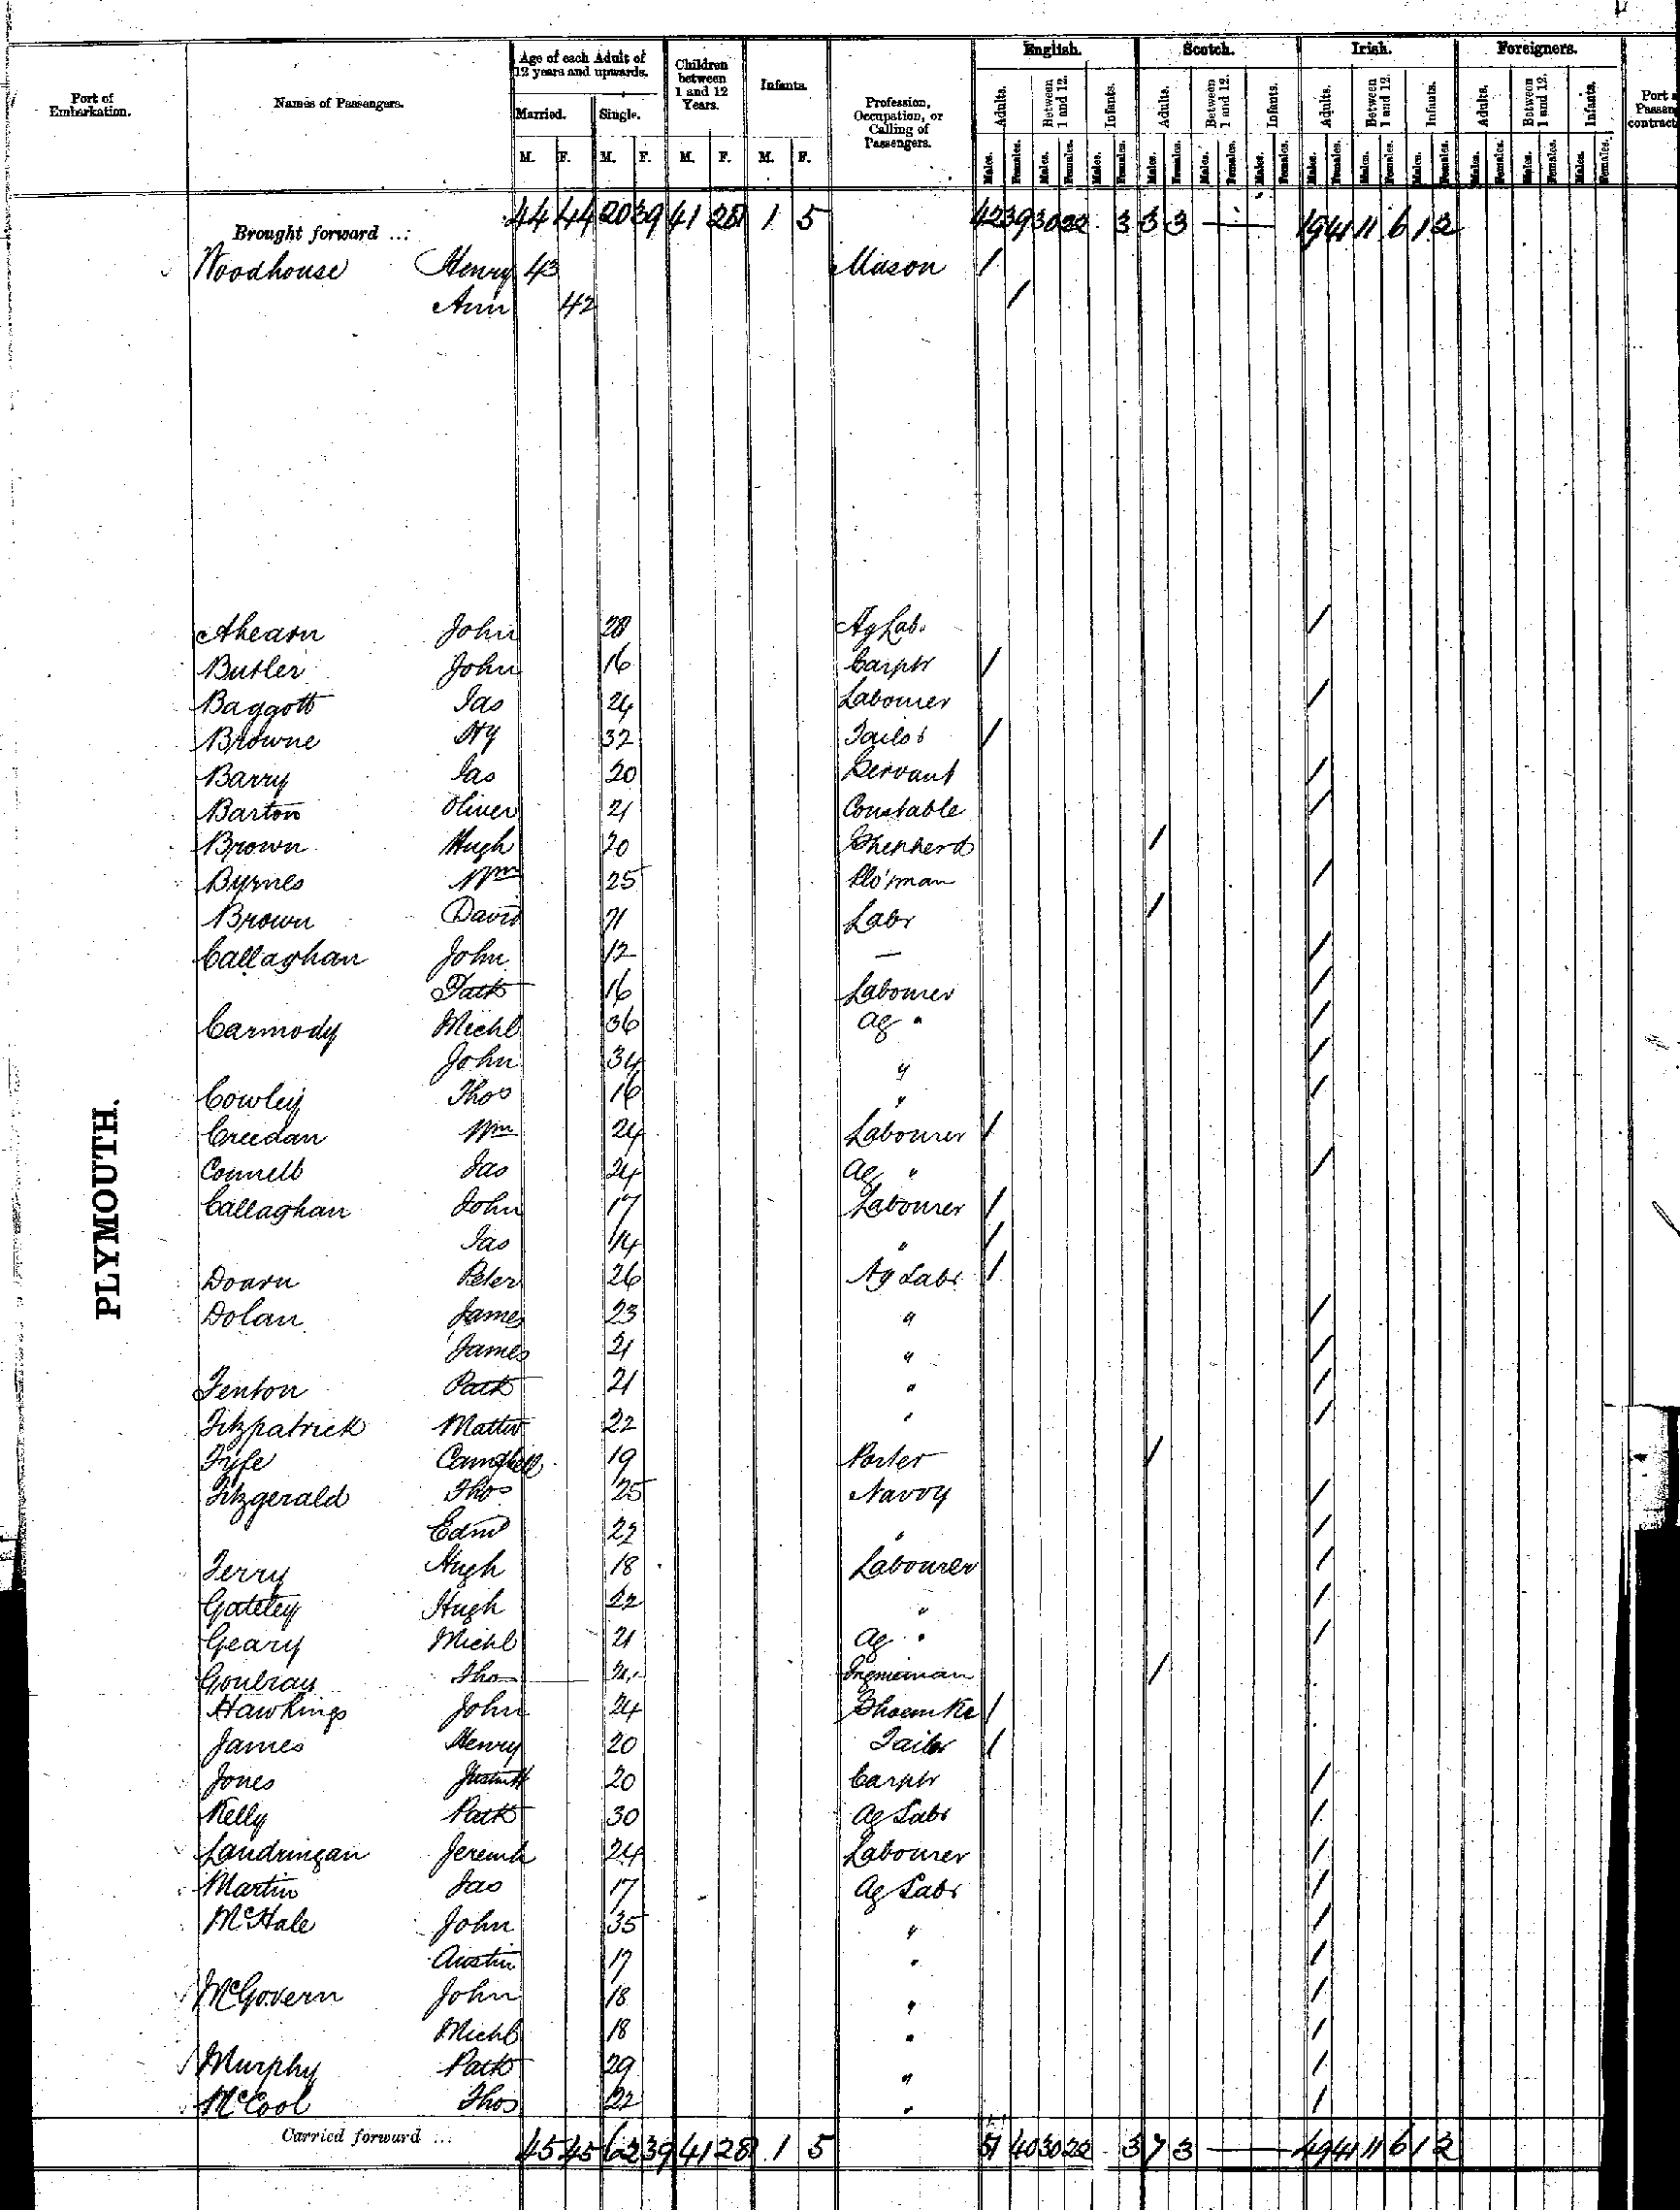 English. Scotch. Irish. Foreigners.
Port of Embarkation. Names of Passengers. Age of each Adult of 12 years and upwards. Children between 1 and 12 Years. Infants. Profession, Occupation, or Calling of Passengers. Adults. Between 1 and 12. Infants. Adults. Between 1 and 12. Infants. Adults. Between 1 and 12. Infants. Adults. Between 1 and 12. Infants. Port Passen contract
Married. Single.
M. F. M. F. M. F. M. F. Males. Females. Males. Females. Males. Females. Males. Females. Males. Females. Males. Females. Males. Females. Males. Females. Males. Females. Males. Females. Males. Females. Males. Females.
Brought forward ...: 44 44 20 39 41 28 1 5 42 39 30 22 3 3 3 — 19 41 11 6 1 2
Woodhouse Henry 43 Mason /
Ann 42 /
Ahearn John 28 Ag Lab. /
Butler John 16 Carptr /
Baggott Jas 24 Labourer /
Browne Hy 32 Tailor /
Barry Jas 20 Servant /
Barton Oliver 21 Constable /
Brown Hugh 20 Shepherd /
Byrnes Wm 25 Plo'man /
Brown David 21 Labr /
Callaghan John 12 — /
Patk 16 Labourer /
Carmody Michl 36 Ag " /
John 34 " /
Cowley Thos 16 " /
Creedan Wm 24 Labourer /
Connell Jas 24 Ag " /
Callaghan John 17 Labourer /
Jas 14 " /
Doarn Peter 26 Ag Labr /
Dolan James 23 " /
James 21 " /
Fenton Patk 21 " /
Fitzpatrick Mattw 22 " /
Fyfe Campbell 19 Porter /
Fitzgerald Thos 25 Navvy /
Edmd 22 " /
Ferry Hugh 18 Labourer /
Gateley Hugh 22 " /
Geary Michl 21 Ag " /
Thos /
Hawkings John 24 Shoemkr /
James Henry 20 Tailor /
Jones 20 Carptr /
Kelly Patk 30 Ag Labr /
Landringan Jeremh 24 Labourer /
Martin Jas 17 Ag Labr /
McHale John 35 " /
Austin 17 " /
McGovern John 18 " /
Michl 18 " /
Murphy Patk 29 " /
McCool Thos 22 " /
Carried forward ... 45 45 62 39 41 28 1 5 51 40 30 22 3 7 3 — 49 41 11 6 1 2
PLYMOUTH.